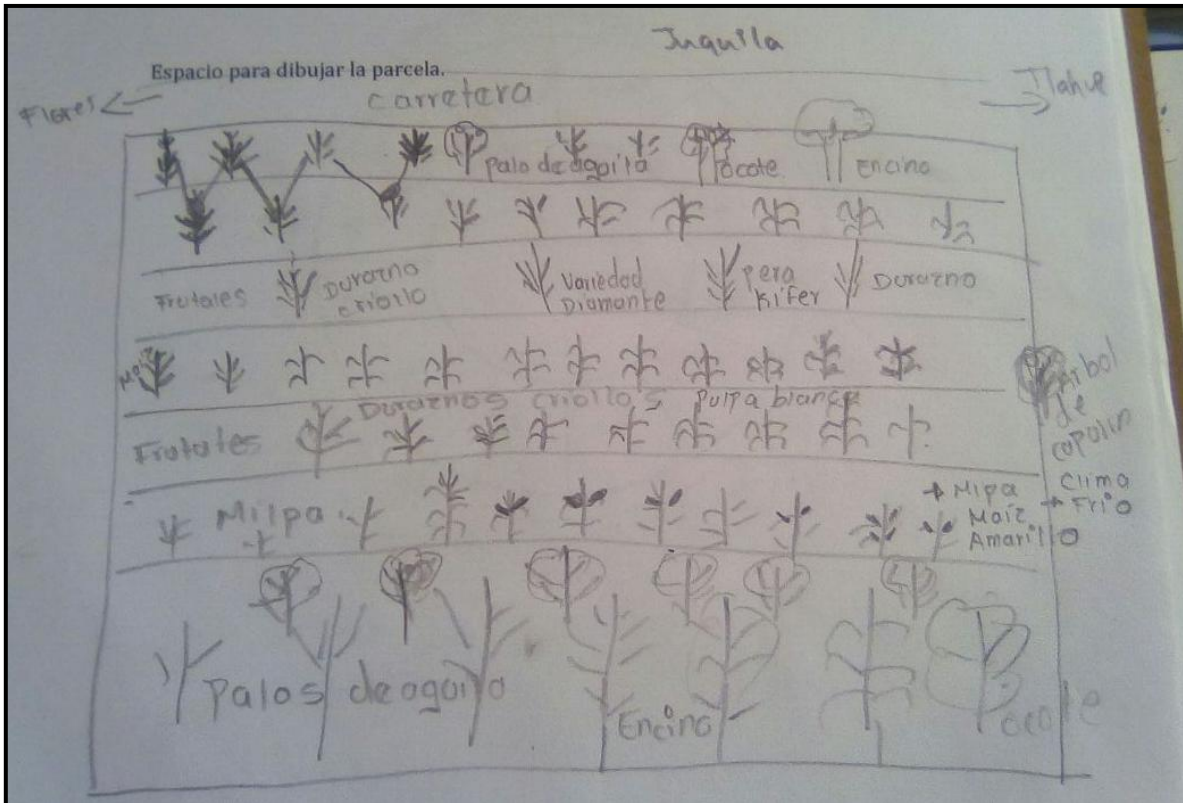 Juquila
Espacio para dibujar la parcela.
Flores
carretera
Tlahui
Palo de agoita
ocote
Encino
Frutales
Durazno criollo
Variedad Diamante
pera Kifer
Durazno
Duraznos criollos Pulpa blanca
Frutales
Arbol de copolin
Milpa
Mipa Maiz Amarillo
Clima Frio
Palos de agoito
Encino
ocote